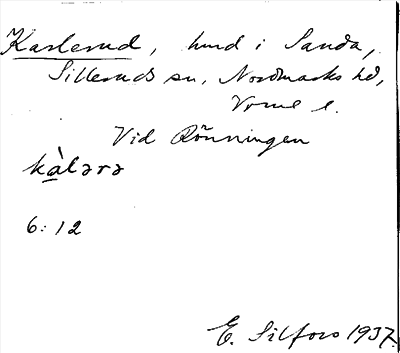 Karlerud, hmd i Sanda,
Silleruds sn, Nordmarks hd,
Vrml l.
Vid Rönningen
kàlərə
6:12
E. Silfors 1937.